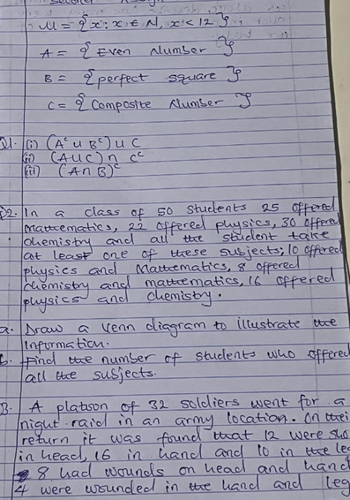 U = { x : x ∈ N, x < 12 }
A = { Even Number }
B = { perfect square }
C = { Composite Number }
Q1. (i) (Aᶜ ∪ Bᶜ) ∪ C
(ii) (A ∪ C) ∩ Cᶜ
(iii) (A ∩ B)ᶜ
Q2. In a class of 50 students 25 offered
Mathematics, 22 offered physics, 30 offered
chemistry and all the student take
at least one of these subjects, 10 offered
physics and Mathematics, 8 offered
chemistry and mathematics, 16 offered
physics and chemistry.
a. Draw a venn diagram to illustrate the
Information.
b. Find the number of students who offered
all the subjects.
3. A platson of 32 soldiers went for a
night raid in an army location. On their
return it was found that 12 were sho
in head, 16 in hand and 10 in the leg
8 had wounds on head and hand
4 were wounded in the hand and leg